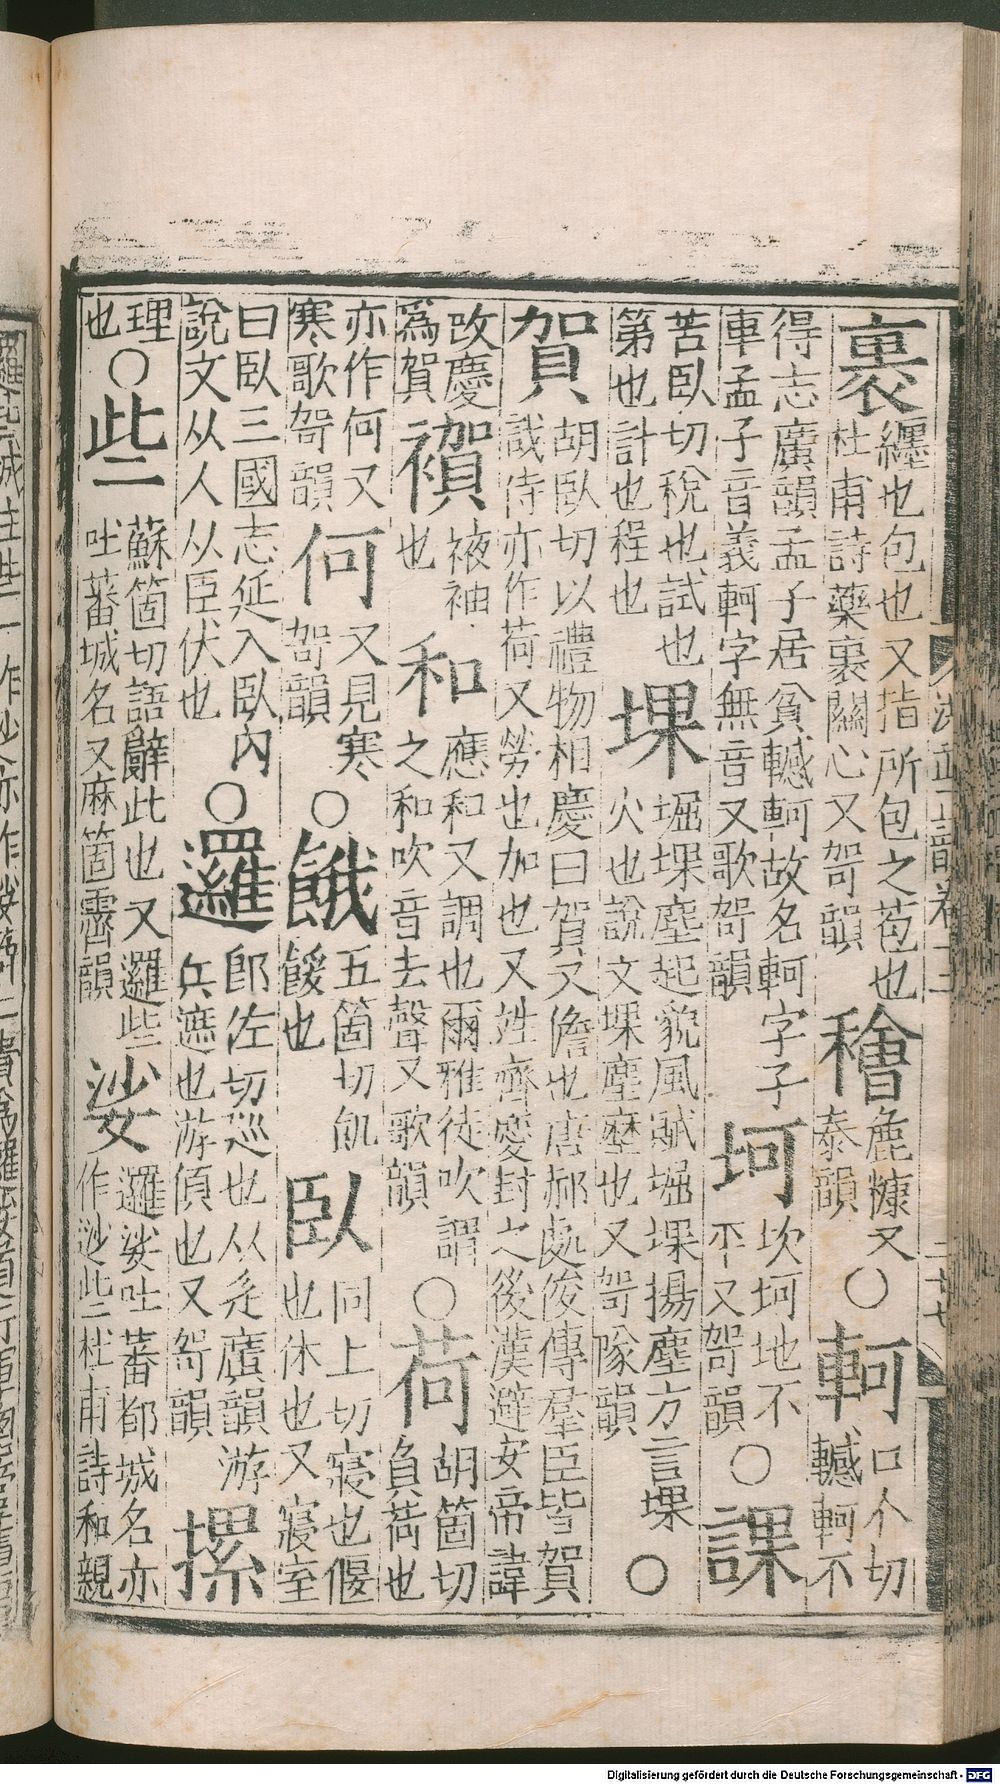 裹纒也包也又指所包之苞也杜甫詩藥裹關心又哿韻䅚麁糠又泰韻〇軻口个切轗軻不
得志廣韻孟子居貧轗軻故名軻字子車孟子音義軻字無音又歌哿韻坷坎坷地不平又哿韻〇課
苦臥切稅也試也第也計也程也堁堀堁塵起貌風賦堀堁揚塵方言堁火也說文堁塵塺也又哿隊韻〇
賀胡臥切以禮物相慶曰賀又儋也唐郝處俊傳羣臣皆賀戟侍亦作荷又勞也加也又姓齊慶封之後漢避安帝諱
改慶爲賀䙤袯袖也和應和又調也爾雅徒吹謂之和吹音去聲又歌韻〇荷胡箇切負荷也
亦作何又寒歌哿韻何又見寒哿韻〇餓五箇切飢餒也臥同上切寢也偃也休也又寢室
曰臥三國志延入臥內說文从人从臣伏也〇邏郎佐切巡也从辵廣韻游兵遮也游偵也又哿韻摞
理也〇些蘇箇切語辭此也又邏些吐蕃城名又麻箇霽韻娑邏娑吐蕃都城名亦作逤些杜甫詩和親
Digitalisierung gefördert durch die Deutsche Forschungsgemeinschaft - DFG